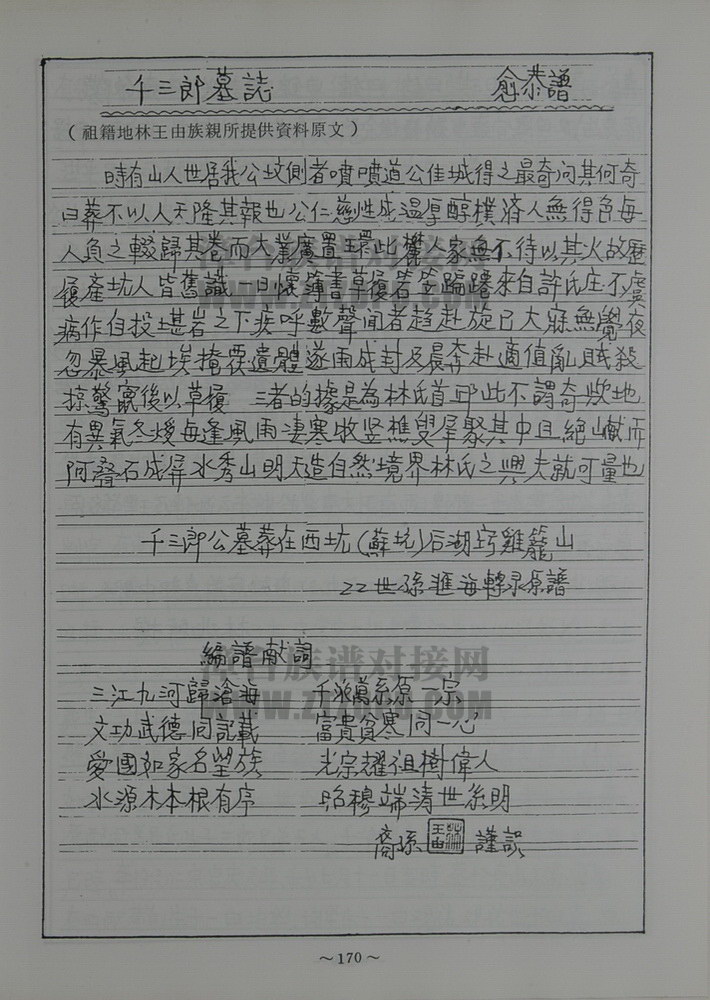 千三郎墓誌 愈恭譜
（祖籍地林王由族親所提供資料原文）
時有山人世居我公坟側者嘖嘖道公佳城得之最奇问其何奇
曰葬不以人天隆其報也公仁慈性成溫厚醇樸済人無得色每
人負之輟歸其卷而大業廣置環此舊人家無不待以其火故歷
履產坑人皆舊識一日懷簿書草履箬笠蹁蹮来自許氏庄不虞
病作自投堪岩之下疾呼數聲闻者趋赴施已大寐無覺夜
忽暴風起埃掩覆遺體遂雨成封及晨奔赴適值亂賊殺
掠驚竄後以草履 三者的據是為林氏首邱此不謂奇欤地
有異氣冬煖每逢風雨凄寒牧竖樵叟屏聚其中且絕巘而
阿聳石成屏水秀山明天造自然境界林氏之興夫就可量也
千三郎公墓葬在西坑(蘇坑)后湖塆雞籠山
22世孫滙海轉录原譜
編譜献詞
三江九河歸滄海 千派萬系原一宗
文功武德同記載 富貴貧寒同一心
愛國如家名望族 光宗耀祖樹偉人
水源木本根有序 昭穆端清世系明
裔孫 林王由 謹誤
~170~
综合族谱对接网
WWW.ZJZUPU.COM